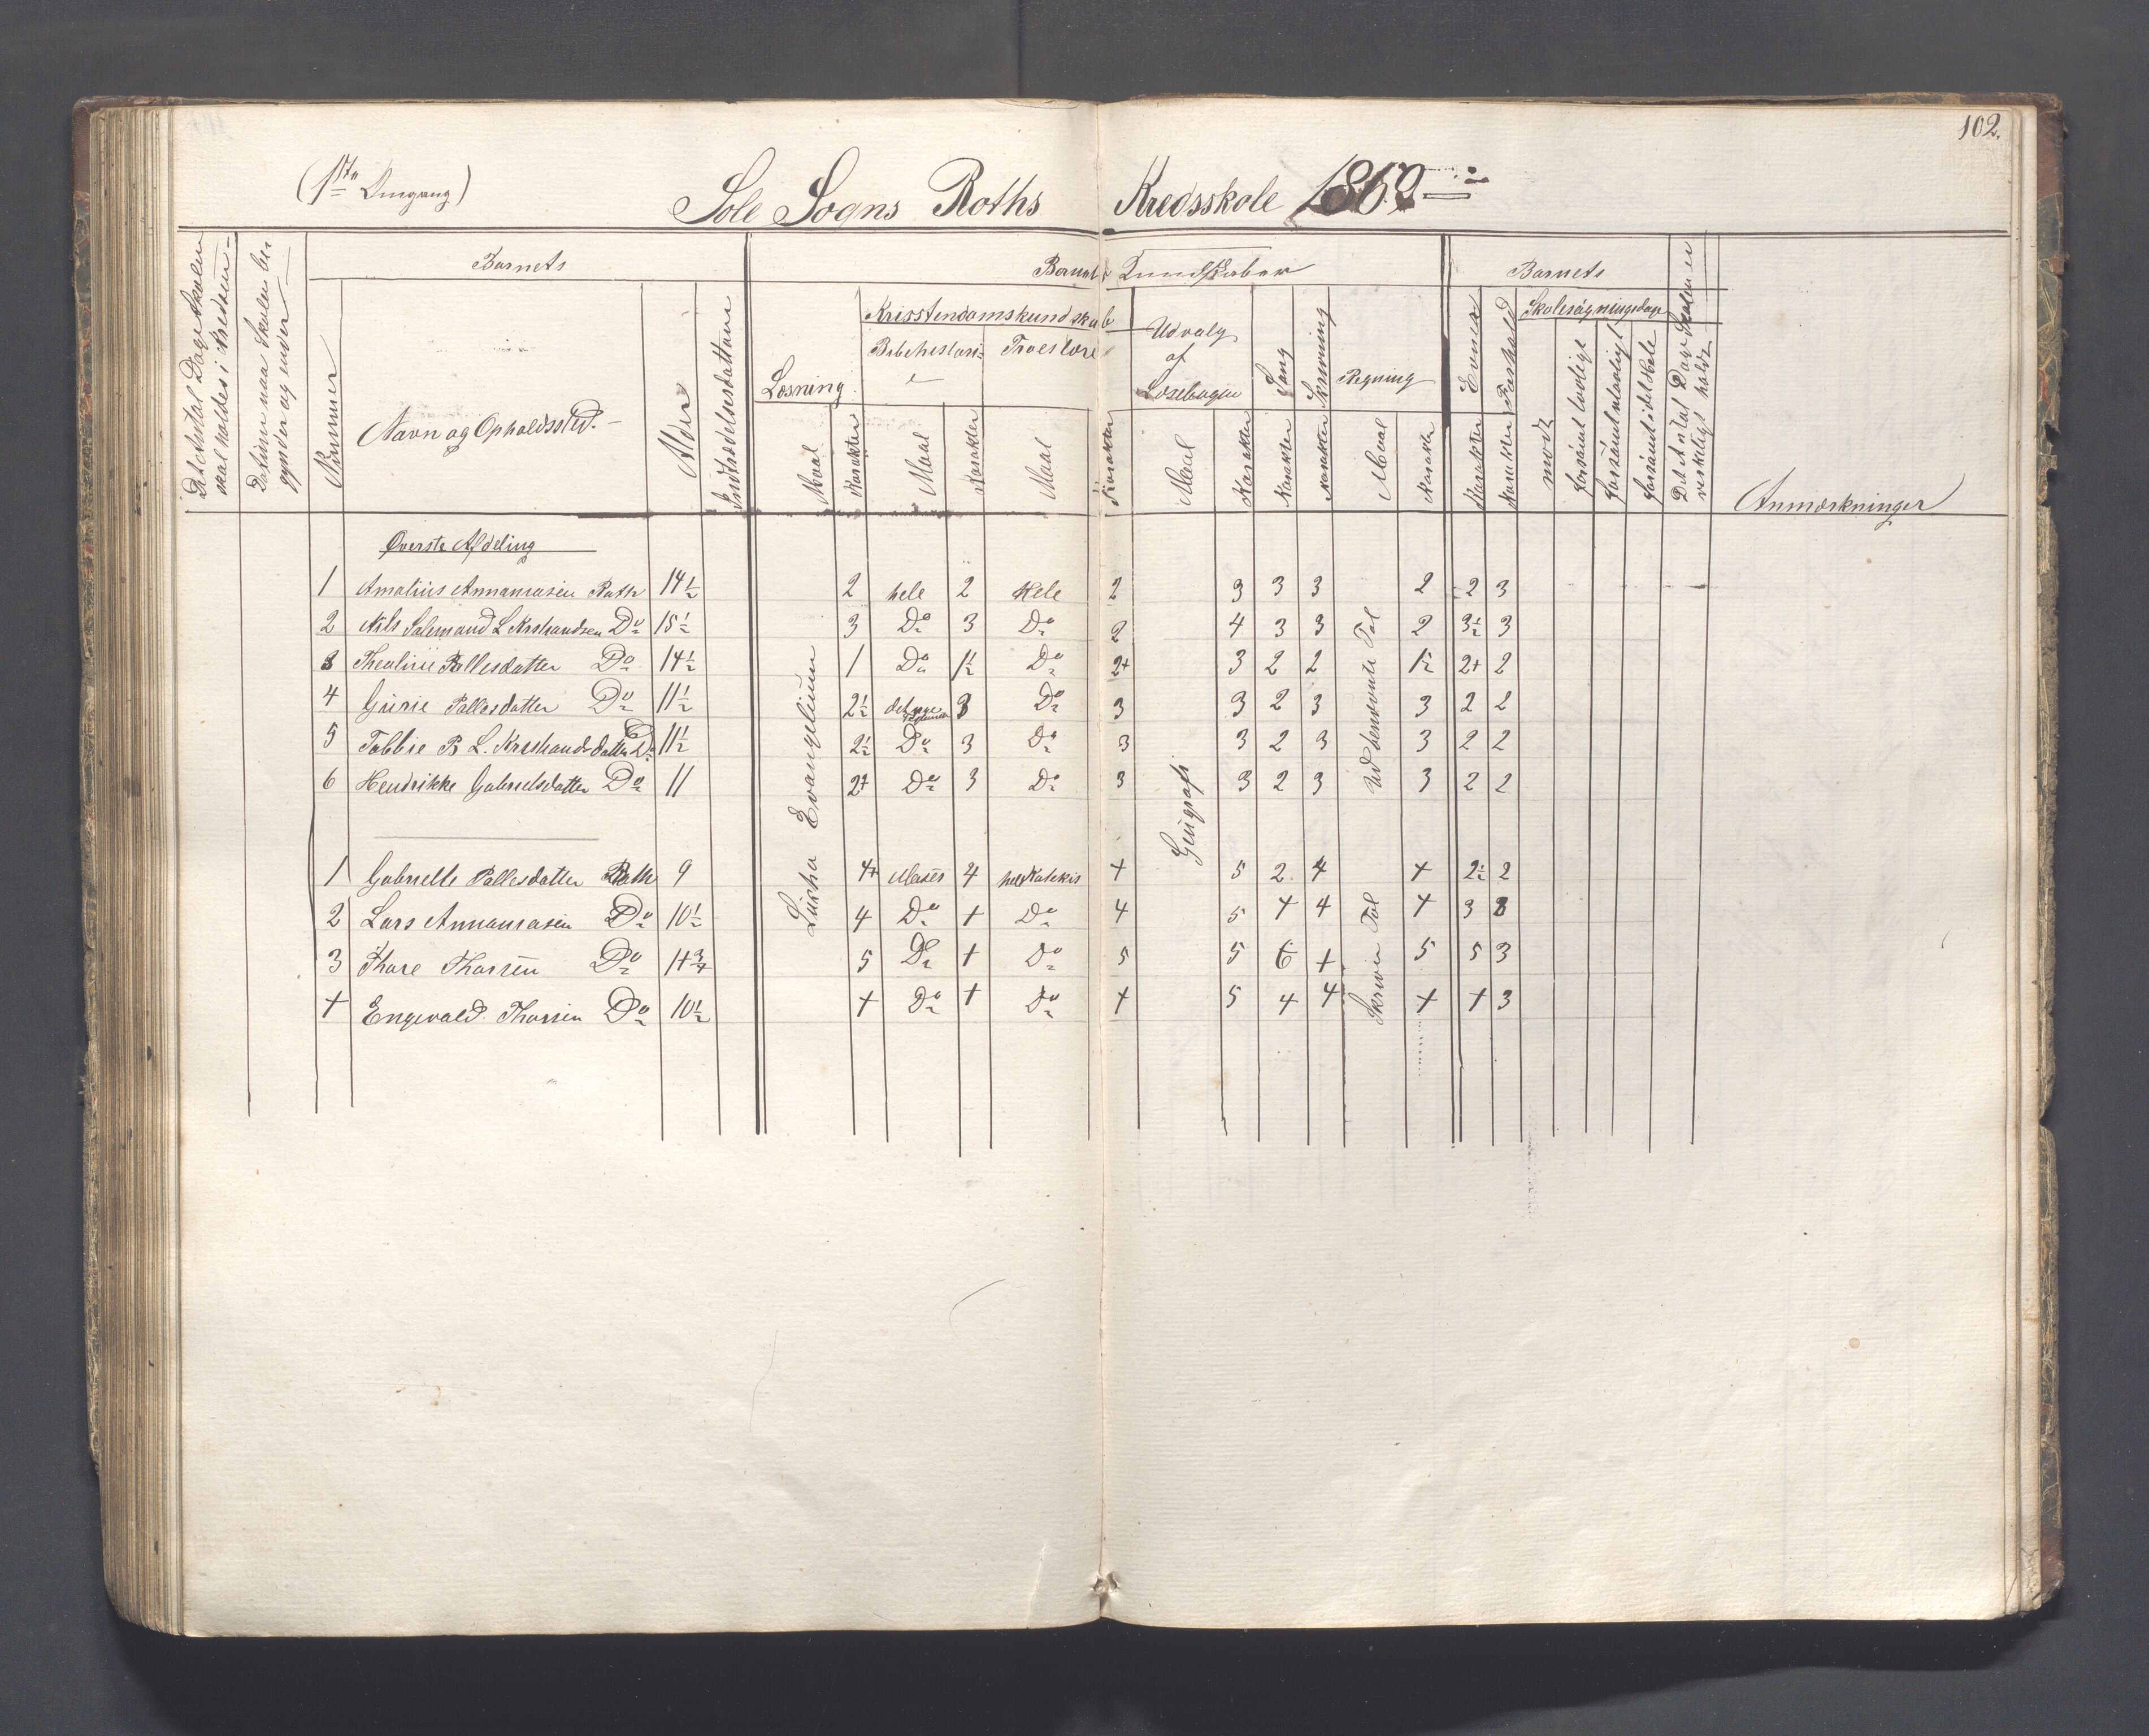 102.
(1ste Omgang) Sole Sogns Roths Kredsskole
Det Antal Dage Skolen skal holdes i Kredsen
Datum naar Skolen begynder og ender
Barnets
Nummer
Navn og Opholdssted.
Alder
Indtrædelsesdatum
Barnets Kundskaber
Læsning
Maal
Karakter
Kristendomskundskab
Bibelhistorie
Maal
Karakter
Troeslære
Maal
Karakter
Udvalg af Læsebogen
Maal
Karakter
Sang
Karakter
Skrivning
Karakter
Regning
Maal
Karakter
Barnets
Evner
Karakter
Forhold
Karakter
Skolesøgningsdage
mødt
forsømt lovligt
forsømt ulovligt
forsømt i det Hele
Det Antal Dage Skolen er virkeligt holdt
Anmærkninger
Øverste Afdeling
Lucka Evangelium
Geugrafi
Udbenævnte Tal
Skreven Tal
1 Amalius Annaniasen Roth 14½ 2 hele 2 Hele 2 3 3 3 2 2 3
2 Nils Salemand L Kristiandsen Do 15½ 3 Do 3 Do 2 4 3 3 2 3½ 3
3 Theuline Pallesdatter Do 14½ 1 Do 1½ Do 2+ 3 2 2 1½ 2+ 2
4 Gurie Pallesdatter Do 11½ 2½ det nye 3 Do 3 3 2 3 3 2 2
5 Tobbie B L. Kristiandsdatter Do 11½ 2½ Do 3 Do 3 3 2 3 3 2 2
6 Hendrikke Gabrielsdatter Do 11 2+ Do 3 Do 3 3 2 3 3 2 2
1 Gabrielle Pallesdatter Roth 9 4+ Moses 4 hele Katekis 4 5 2 4 4 2½ 2
2 Lars Annaniasen Do 10½ 4 Do 4 Do 4 5 4 4 4 3 3
3 Thore Thorsen Do 14¾ 5 Do 4 Do 5 5 6 4 5 5 3
4 Engevald Thorsen Do 10½ 4 Do 4 Do 4 5 4 4 4 4 3